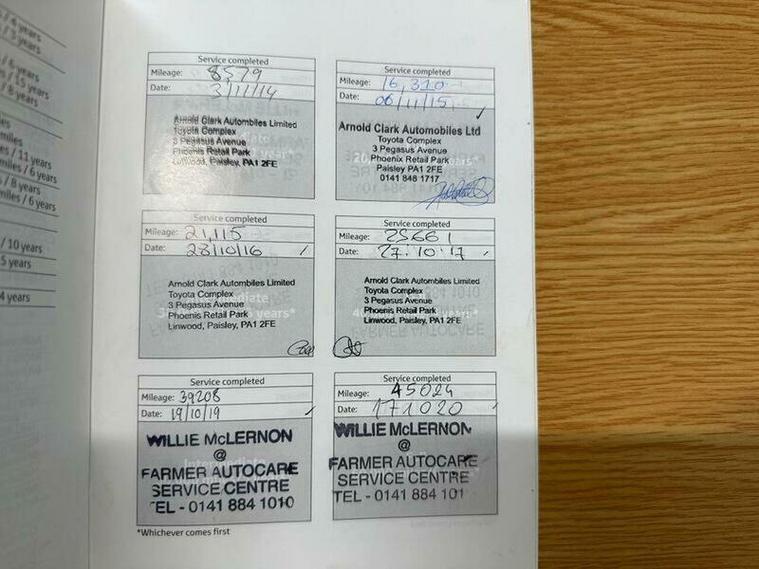 / 4 years
/ 3 years
/ 6 years
/ 15 years
/ 8 years
miles
/ 11 years
miles / 6 years
/ 8 years
miles / 6 years
/ 10 years
5 years
4 years
Service completed
Mileage: 8579
Date: 3/11/14
Arnold Clark Automobiles Limited
Toyota Complex
3 Pegasus Avenue
Phoenis Retail Park
Linwood, Paisley, PA1 2FE
Service completed
Mileage: 16,310
Date: 06/11/15
Arnold Clark Automobiles Ltd
Toyota Complex
3 Pegasus Avenue
Phoenix Retail Park
Paisley PA1 2FE
0141 848 1717
Service completed
Mileage: 21,115
Date: 28/10/16
Arnold Clark Autombiles Limited
Toyota Complex
3 Pegasus Avenue
Phoenis Retail Park
Linwood, Paisley, PA1 2FE
Service completed
Mileage: 25661
Date: 27.10.17
Arnold Clark Autombiles Limited
Toyota Complex
3 Pegasus Avenue
Phoenis Retail Park
Linwood, Paisley, PA1 2FE
Service completed
Mileage: 39208
Date: 19/10/19
WILLIE McLERNON
@
FARMER AUTOCARE
SERVICE CENTRE
TEL - 0141 884 1010
Service completed
Mileage: 45024
Date: 171020
WILLIE McLERNON
@
FARMER AUTOCARE
SERVICE CENTRE
TEL - 0141 884 101
*Whichever comes first